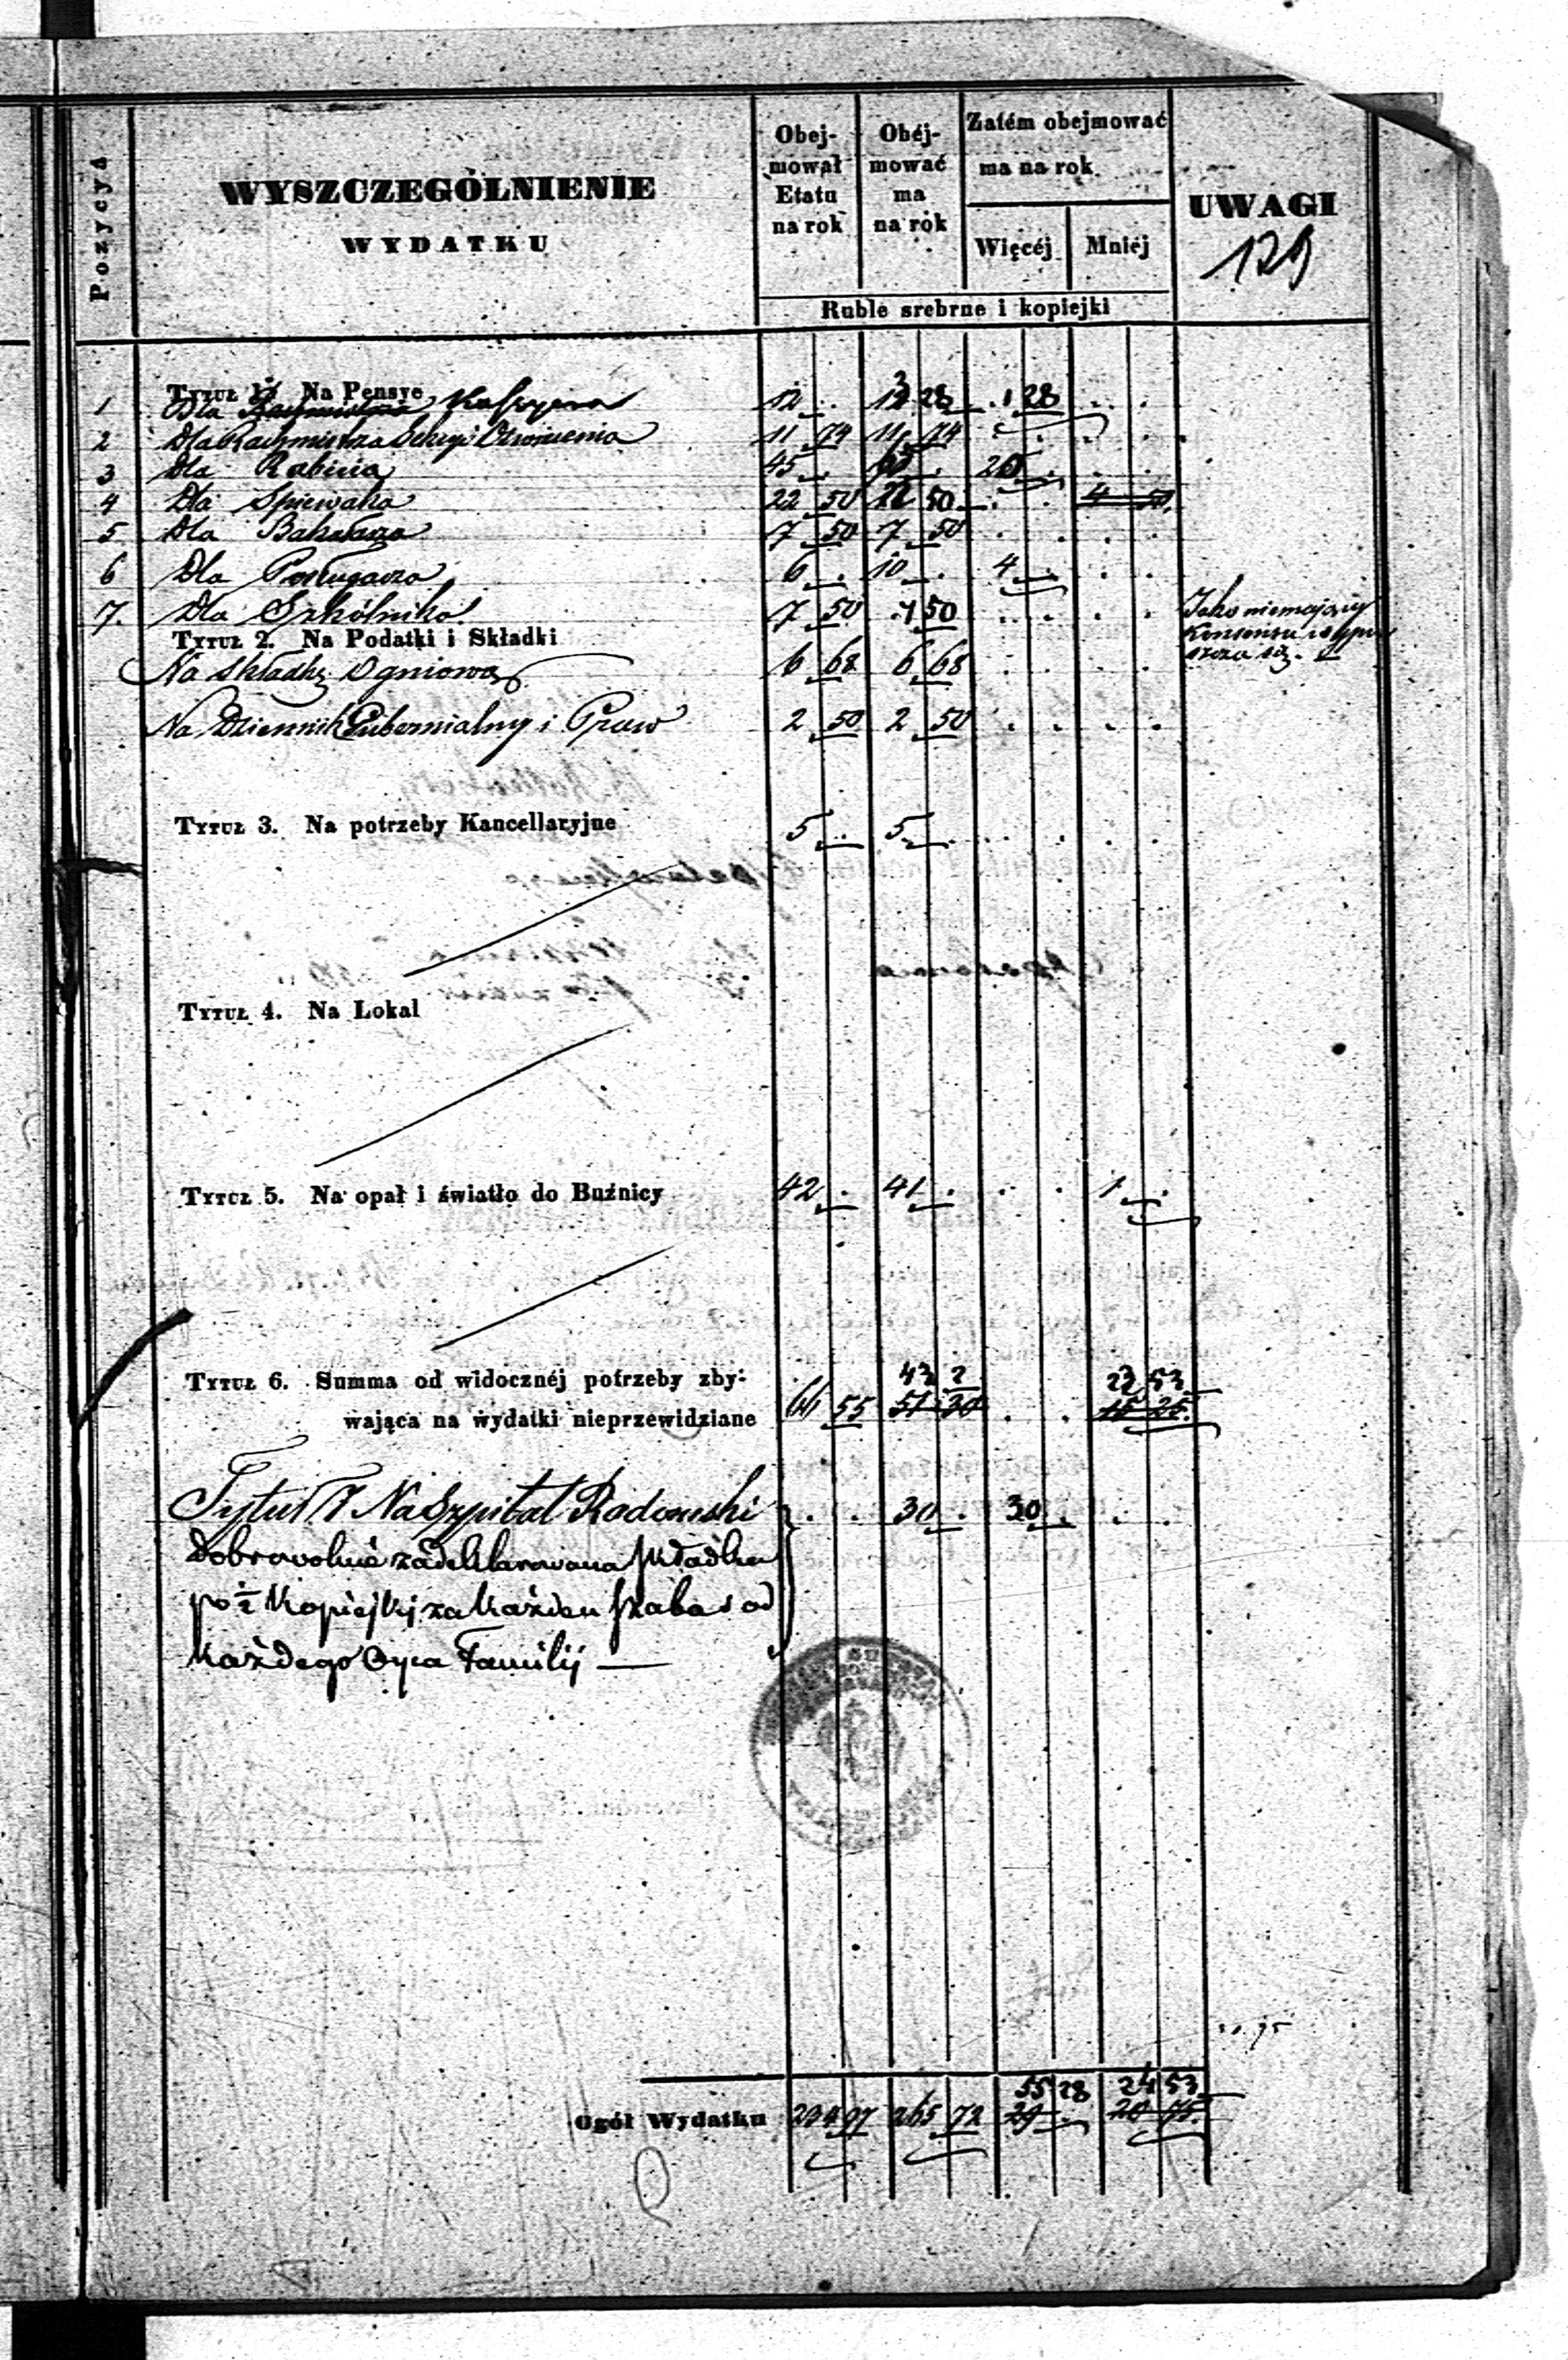 Pozycya
WYSZCZEGÓLNIENIE
WYDATKU
Obej-
mował
Etatu
na rok
Obéj-
mować
ma
na rok
Zatém obejmować
ma na rok
Więcéj
Mniéj
Ruble srebrne i kopiejki
UWAGI
129
Tytuł 1. Na Pensye
1 Dla Kassyera 12 . 13 28 . 1 28 . .
2 Dla Rachmistrza 11 74 11 74 . . . .
3 Dla Rabina 45 . . . .
4 Dla Spiewaka 22 50 22 50 . . 4 50
5 Dla Bakałarza 7 50 7 50 . . . .
6 Dla Posługacza 6 . 10 . 4 . . .
7. Dla Szkólnika 7 50 7 50 . . . . Jako niemający
Tytuł 2. Na Podatki i Składki
Na składkę Ogniową 6 68 6 68 . . . .
Na Dziennik Gubernialny i Praw 2 50 2 50 . . . .
Tytuł 3. Na potrzeby Kancellaryjne 5 . 5 . . . . .
Tytuł 4. Na Lokal
Tytuł 5. Na opał i światło do Buźnicy 42 . 41 . . . 1 .
Tytuł 6. Summa od widocznéj potrzeby zby- 43 2 23 53
wająca na wydatki nieprzewidziane 66 55 51 30 . . 15 25
Tytuł 7 Na Szpital Radomski . . 30 . 30 . . .
Dobrowolnie zadeklarowana składka
po ½ kopiejki za każden szabas od
każdego Oyca Familij —
55 28 24 53
Ogół Wydatku 234 97 265 72 29 . 20 75